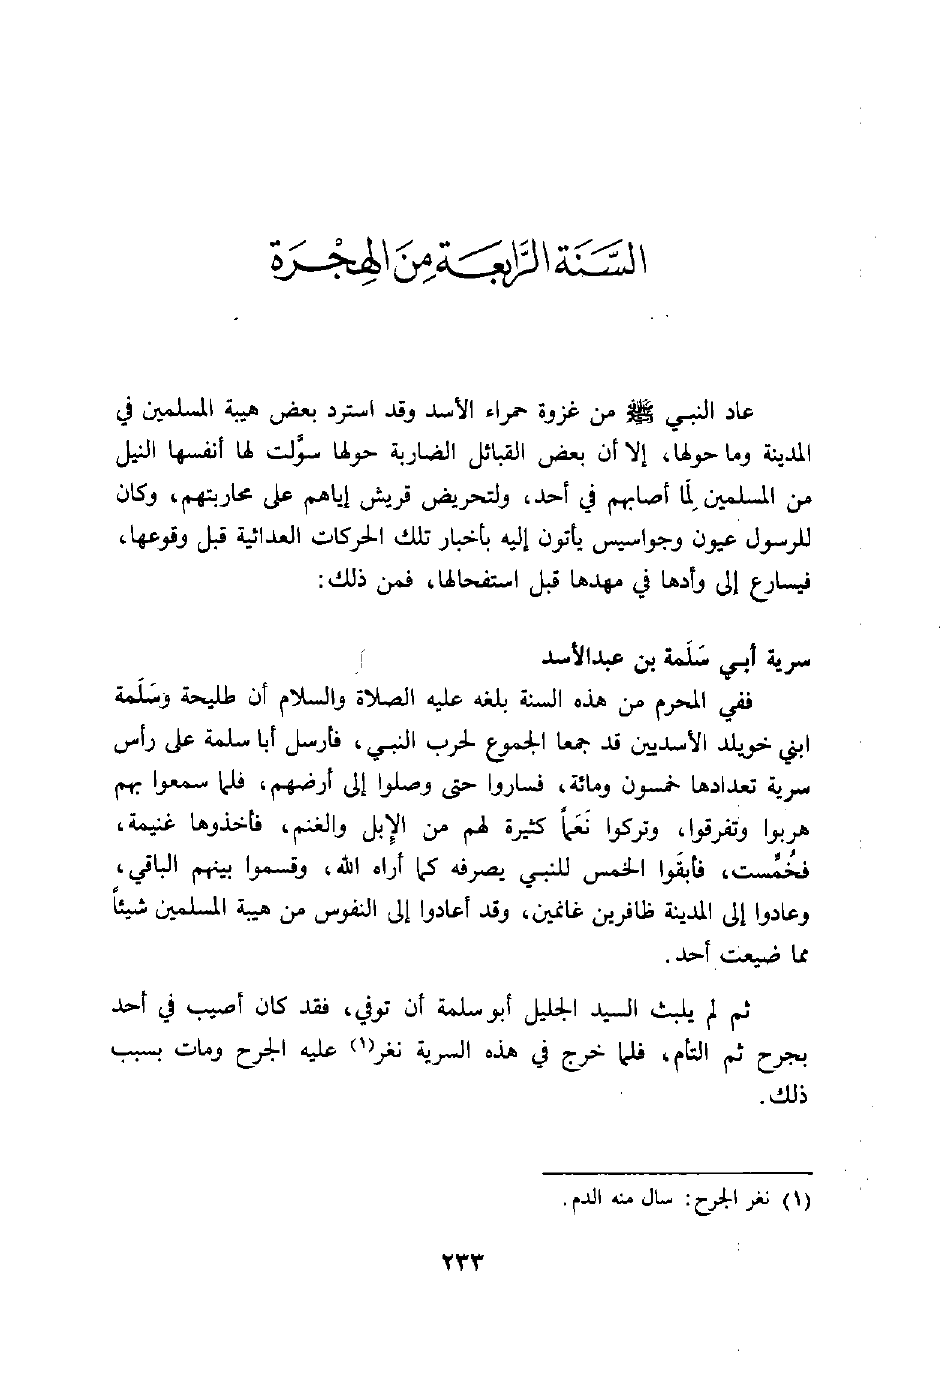 السَّنَة الرَّابعَة مِنَ الهِجْرَة
عاد النبي ﷺ من غزوة حمراء الأسد وقد استرد بعض هيبة المسلمين في
المدينة وما حولها، إلا أن بعض القبائل الضاربة حولها سوَّلت لها أنفسها النيل
من المسلمين لِمَا أصابهم في أحد، ولتحريض قريش إياهم على محاربتهم، وكان
للرسول عيون وجواسيس يأتون إليه بأخبار تلك الحركات العدائية قبل وقوعها،
فيسارع إلى وأدها في مهدها قبل استفحالها، فمن ذلك:
سرية أبي سَلَمة بن عبدالأسد
ففي المحرم من هذه السنة بلغه عليه الصلاة والسلام أن طليحة وسَلَمة
ابني خويلد الأسديين قد جمعا الجموع لحرب النبي، فأرسل أبا سلمة على رأس
سرية تعدادها خمسون ومائة، فساروا حتى وصلوا إلى أرضهم، فلما سمعوا بهم
هربوا وتفرقوا، وتركوا نَعَماً كثيرة لهم من الإبل والغنم، فأخذوها غنيمة،
فخُمِّست، فأبقَوا الخمس للنبي يصرفه كما أراه الله، وقسموا بينهم الباقي،
وعادوا إلى المدينة ظافرين غانمين، وقد أعادوا إلى النفوس من هيبة المسلمين شيئاً
مما ضيعت أحد.
ثم لم يلبث السيد الجليل أبو سلمة أن توفي، فقد كان أصيب في أحد
بجرح ثم التأم، فلما خرج في هذه السرية نغر(١) عليه الجرح ومات بسبب
ذلك.
(١) نغر الجرح: سال منه الدم.
٢٣٣